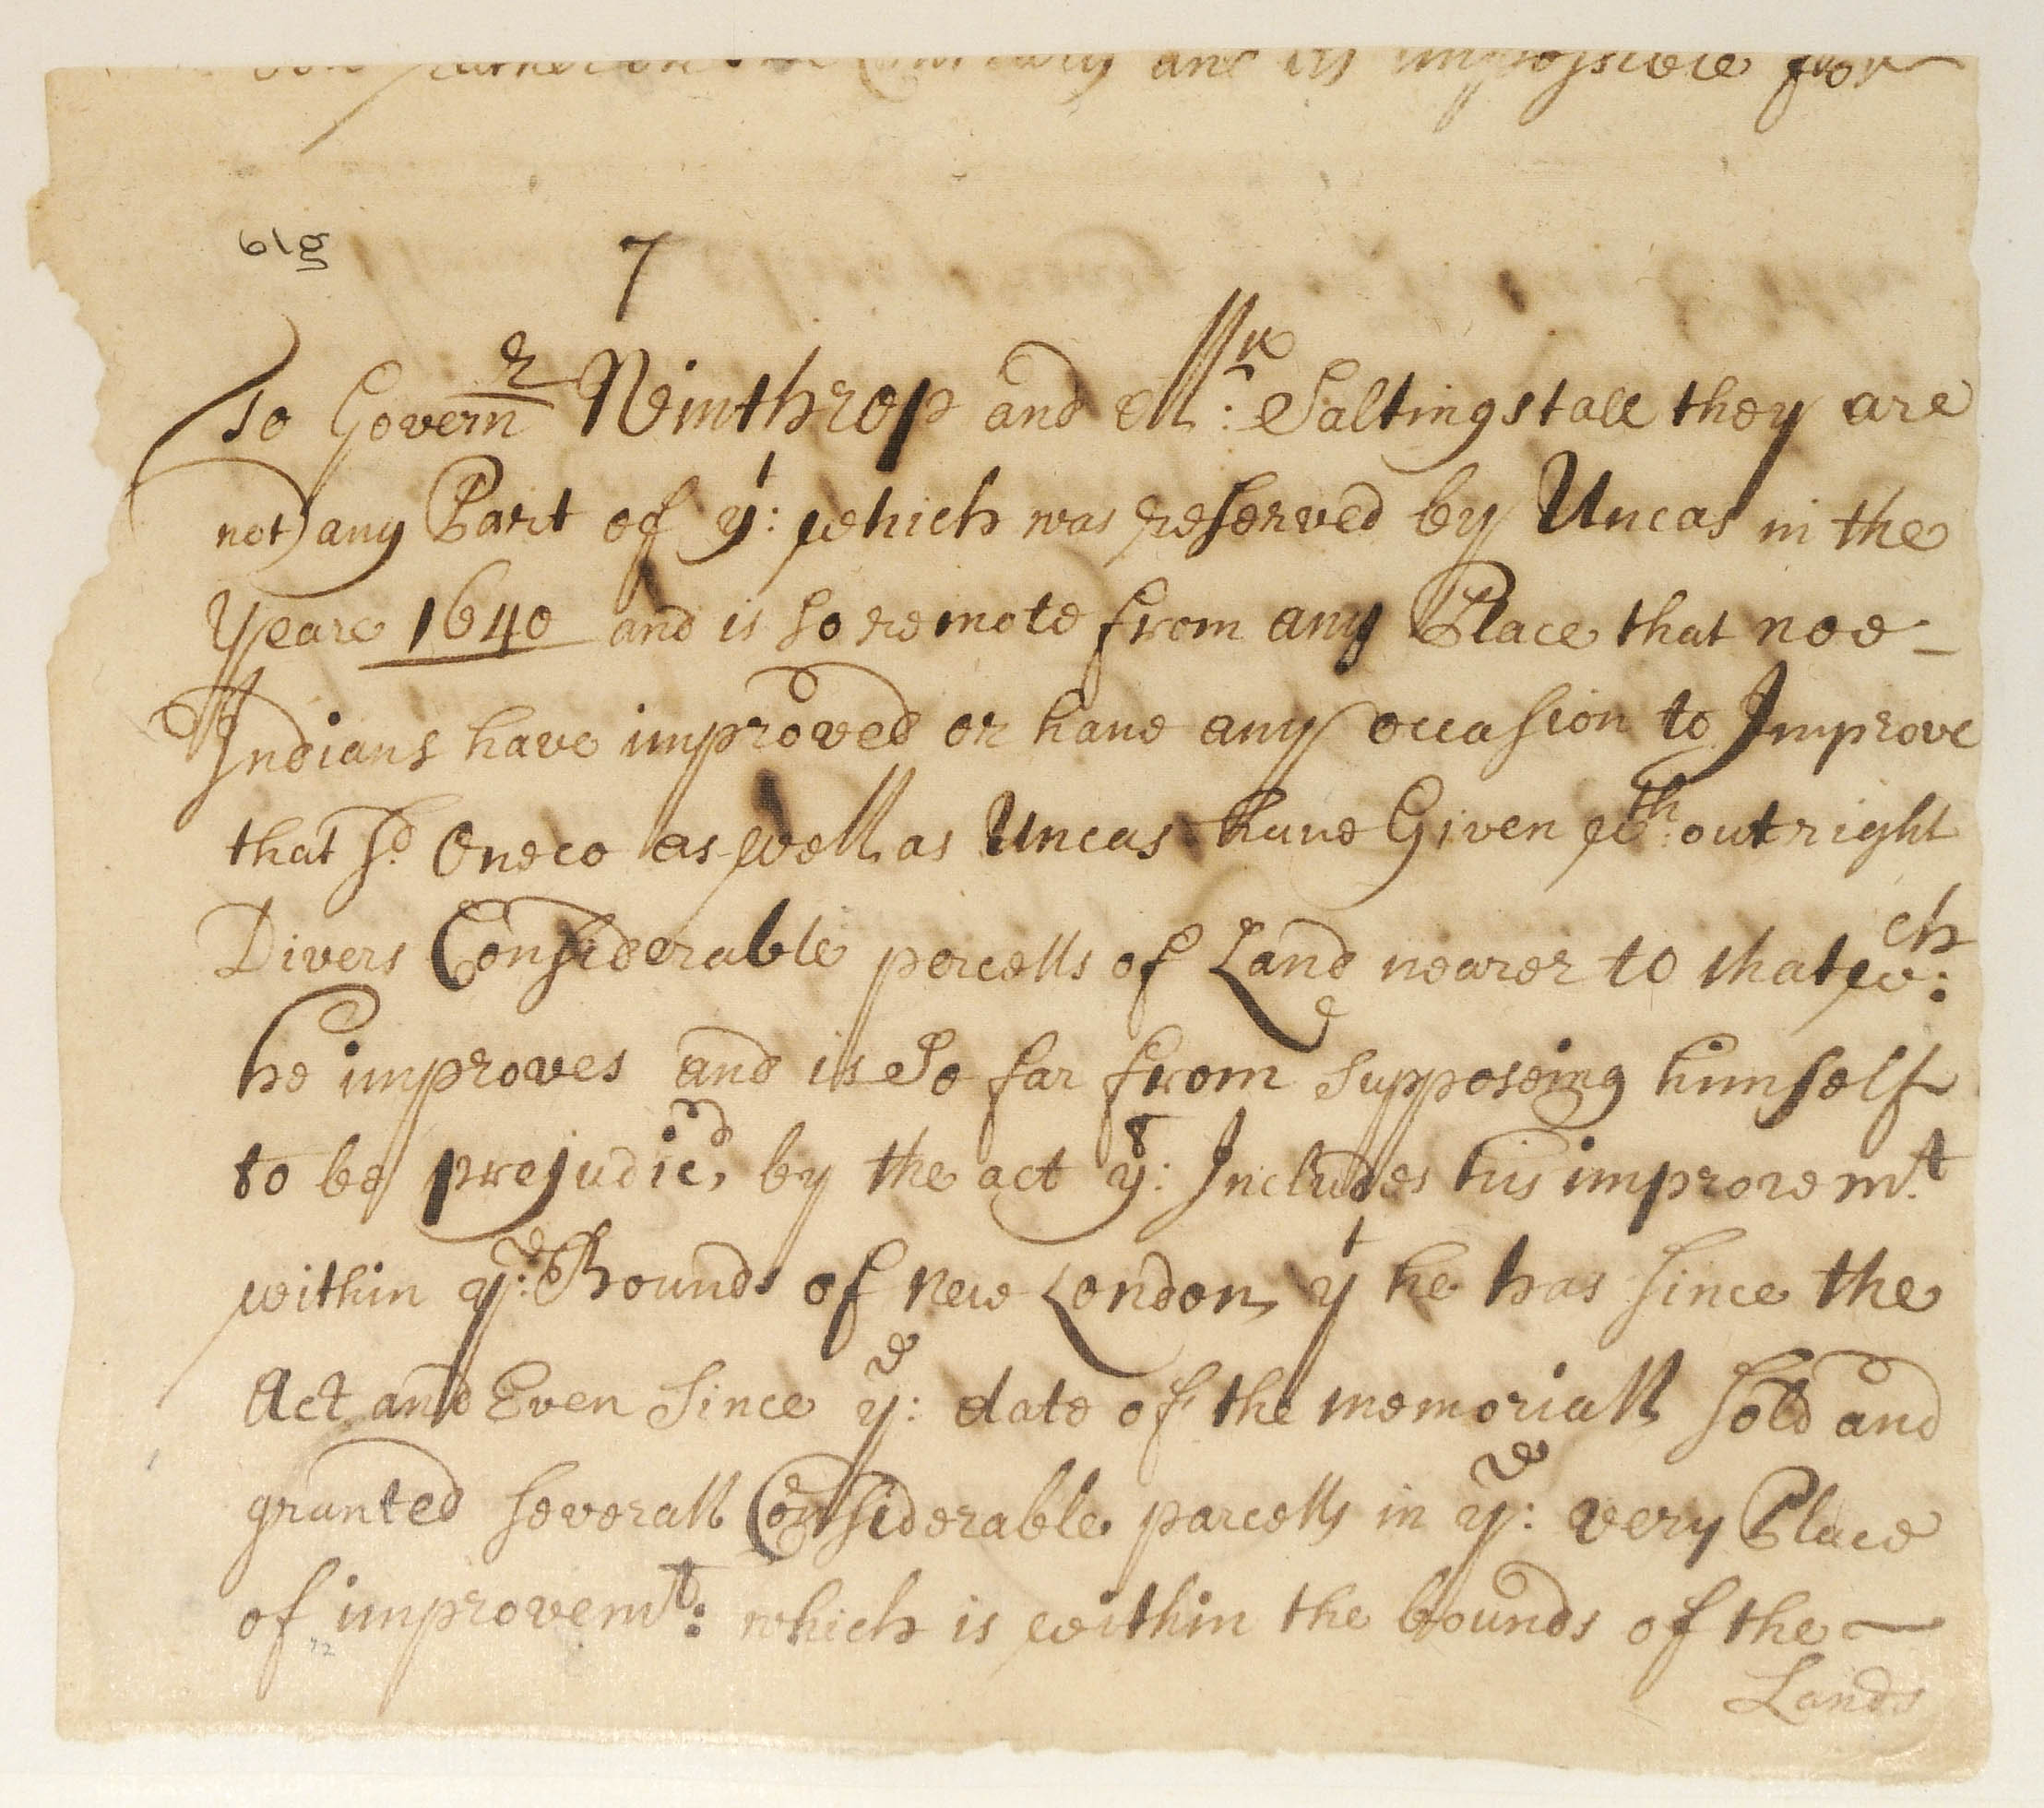 and its impossible for
61g
7
To Govern^r Winthrop and M^r: Saltingstall they are
not any Part of y^t: which was reserved by Uncas in the
Yeare 1640 and is so remote from any Place that noe -
Indians have improved or have any occasion to Improve
that s^d. Oneco as well as Uncas have Given w^th: outright
Divers Considerable percells of Land nearer to that w^ch:
he improves and is So far from supposeing himself
to be prejudic^d, by the act y^t: Includes his improvem^t.
within y^e: Bounds of New London y^t he has since the
Act and Even Since y^e: date of the memoriall sold and
granted severall Considerable parcells in y^e: very Place
of improvem^t: which is within the bounds of the -
Lands